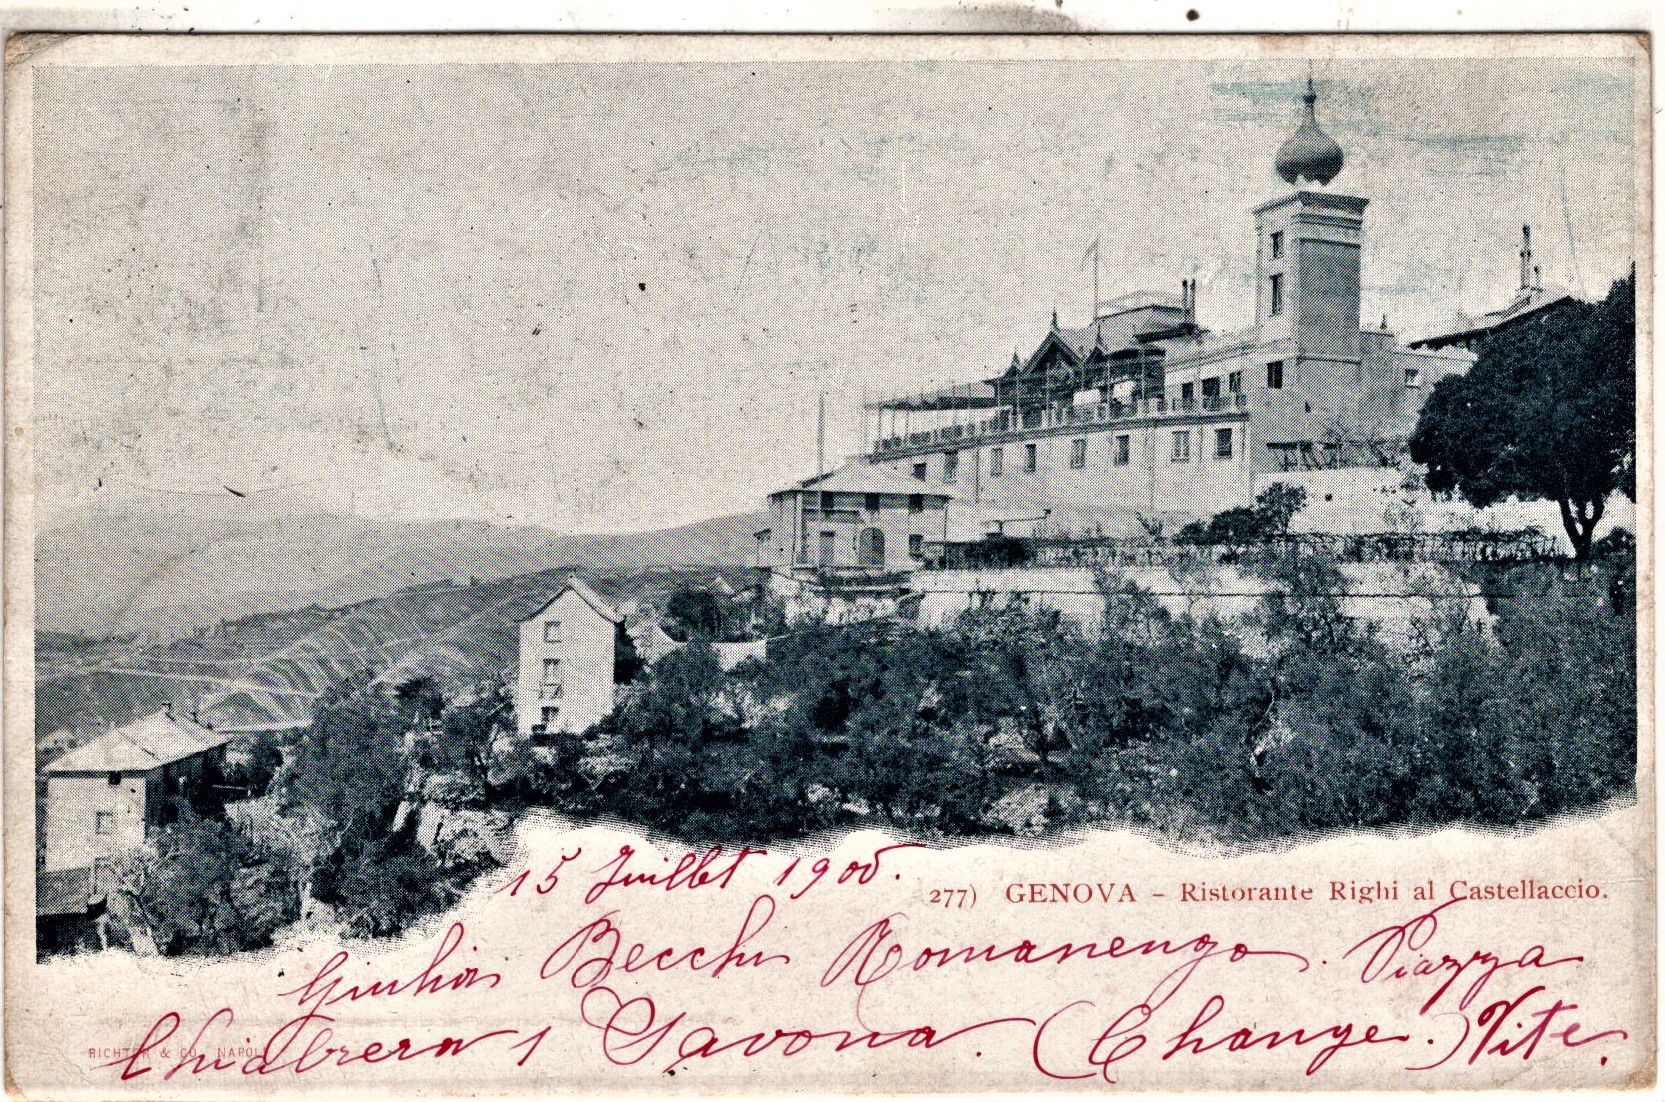 15 Juillet 1900.
277) GENOVA – Ristorante Righi al Castellaccio.
Giulia Becchi Romanengo. Piazza
Chiabrera 1 Savona. (Change.) Vite.
RICHTER & CO. NAPOLI